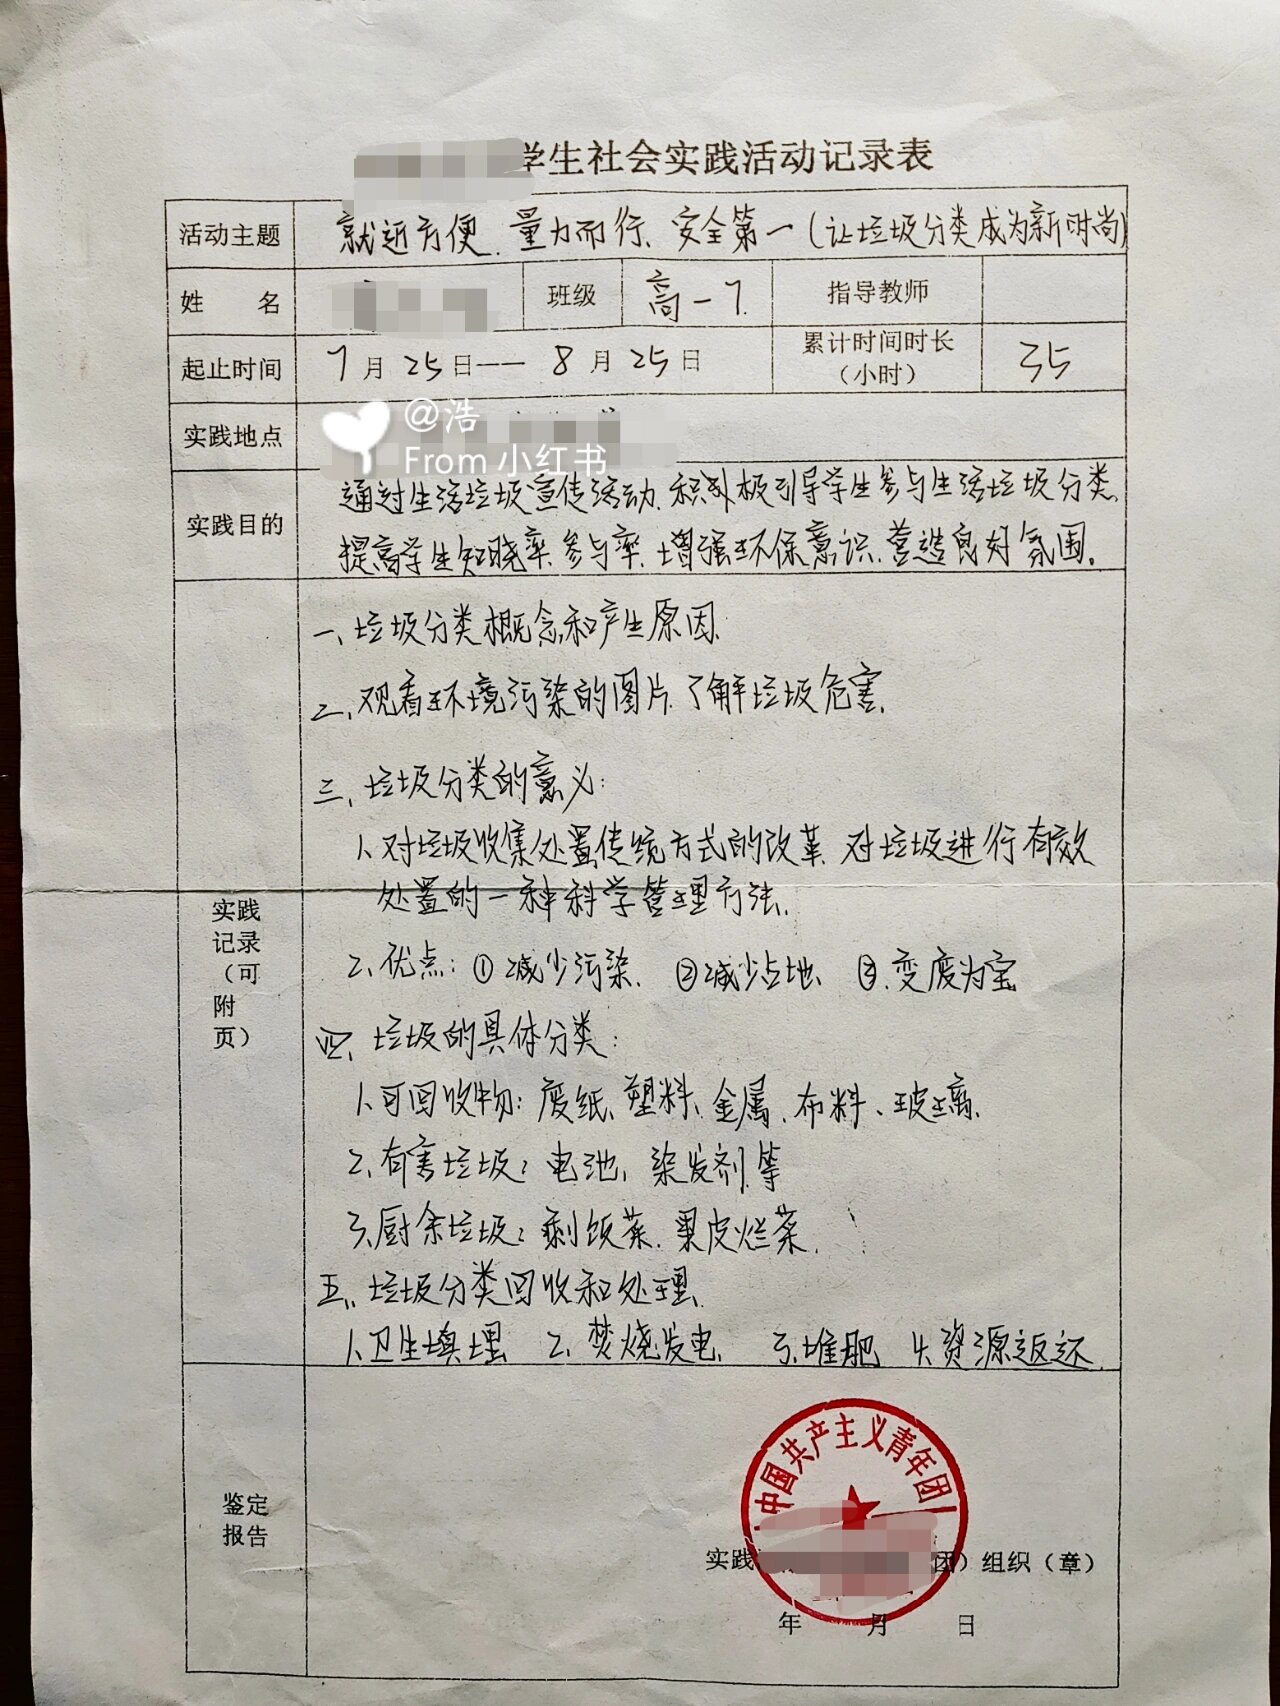 学生社会实践活动记录表
活动主题 就近方便、量力而行、安全第一(让垃圾分类成为新时尚)
姓 名 班级 高一7. 指导教师
起止时间 7月25日——8月25日 累计时间时长（小时） 35
实践地点
@浩
From 小红书
实践目的
通过生活垃圾宣传活动、积极引导学生参与生活垃圾分类、
提高学生知晓率、参与率、增强环保意识、营造良好氛围。
实践
记录
（可
附
页）
一、垃圾分类概念和产生原因、
二、观看环境污染的图片、了解垃圾危害、
三、垃圾分类的意义:
1、对垃圾收集处置传统方式的改革、对垃圾进行有效
处置的一种科学管理方法、
2、优点: ①减少污染、 ②减少占地、 ③、变废为宝
四、垃圾的具体分类:
1、可回收物: 废纸、塑料、金属、布料、玻璃、
2、有害垃圾: 电池、染发剂等
3、厨余垃圾: 剩饭菜、果皮烂菜、
五、垃圾分类回收和处理、
1、卫生填埋 2、焚烧发电、 3、堆肥、 4、资源返还、
鉴定
报告
中国共产主义青年团
实践 团）组织（章）
年 月 日